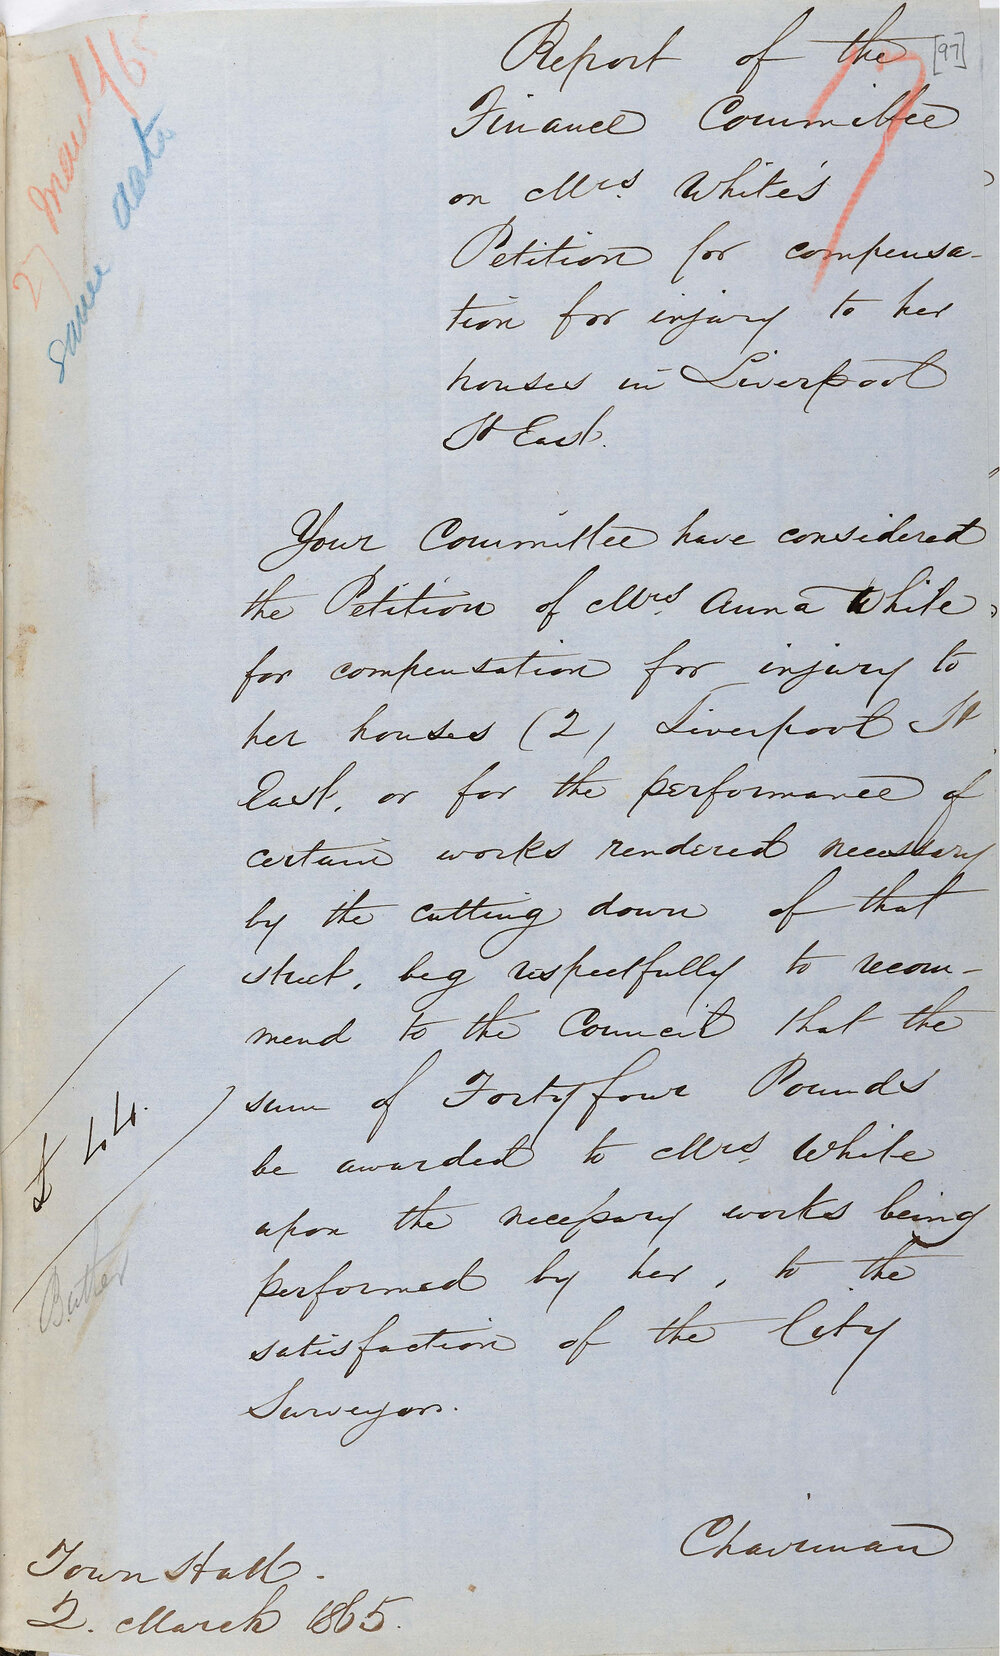 [97]
27 March /65
same date
7
Report of the
Finance Committee
on Mrs. White's
Petition for compensa-
tion for injury to her
houses in Liverpool
St East.
Your Committee have considered
the Petition of Mrs. Anna White,
for compensation for injury to
her houses (2) Liverpool St
East, or for the performance of
certain works rendered necessary
by the cutting down of that
street, beg respectfully to recom-
mend to the Council that the
sum of Forty four Pounds
be awarded to Mrs. White
upon the necessary works being
performed by her, to the
satisfaction of the City
Surveyor.
£44.
Chairman
Town Hall.
2. March 1865.